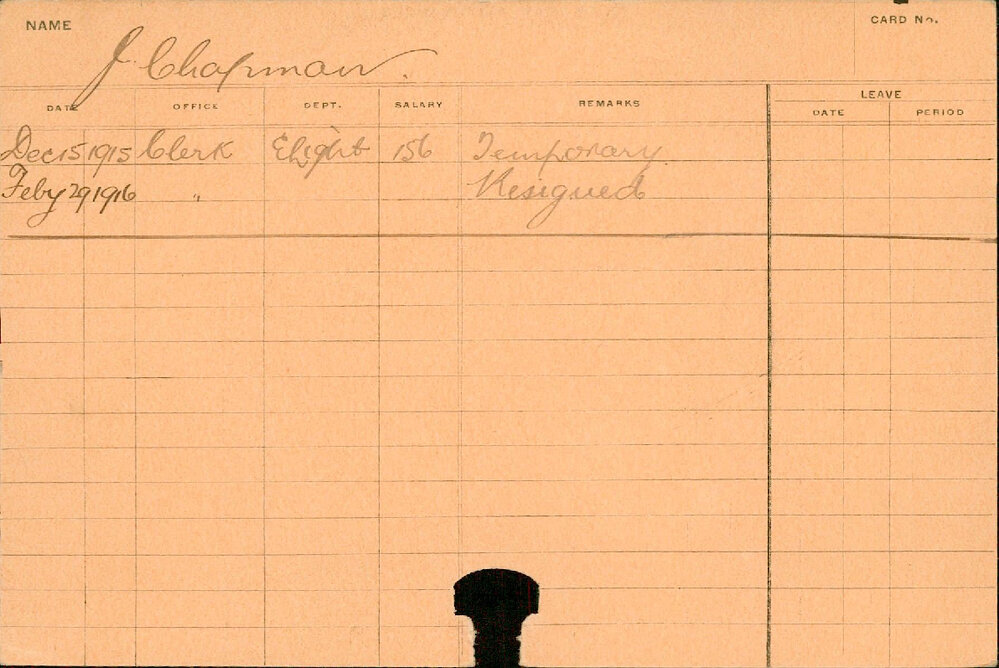 NAME
CARD No.
J. Chapman.
DATE OFFICE DEPT. SALARY REMARKS LEAVE
DATE PERIOD
Dec 15 1915 Clerk E Light 156 Temporary
Feby 29 1916 " Resigned